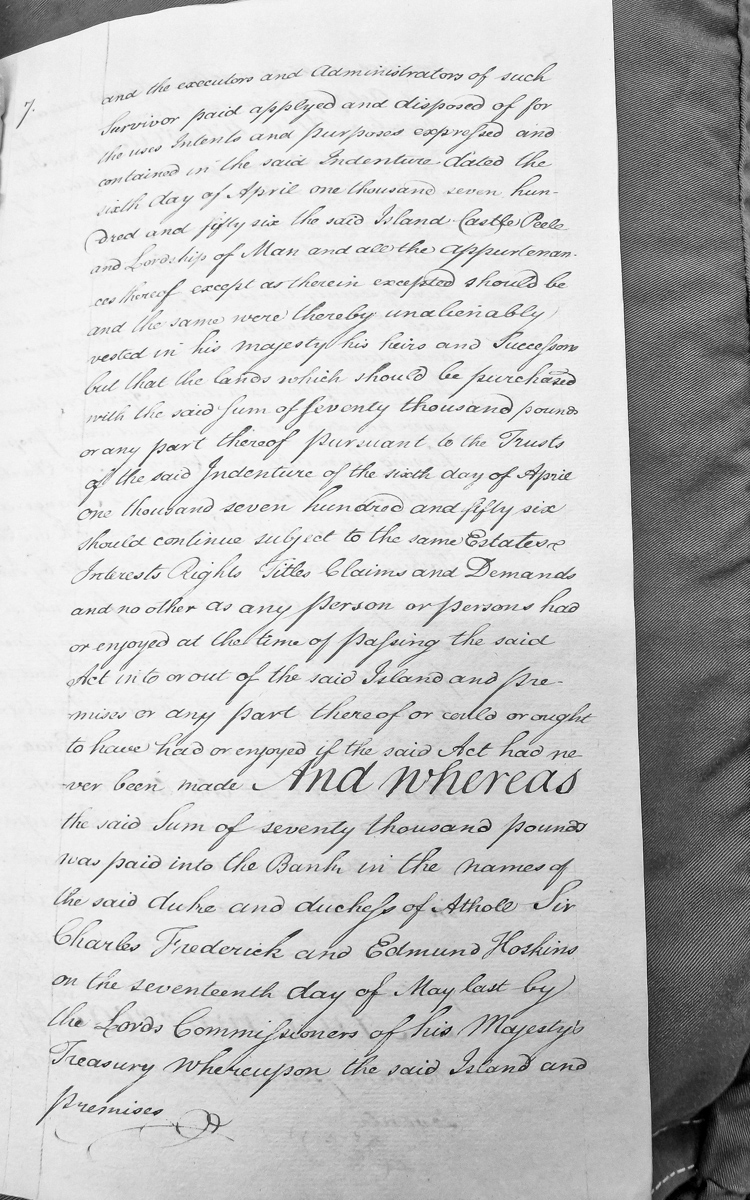 7.
and the executors and Administrators of such
Survivor paid applyed and disposed of for
the uses Intents and purposes expressed and
contained in the said Indenture dated the
sixth day of April one thousand seven hun-
dred and fifty six the said Island Castle Peele
and Lordship of Man and all the appurtenan-
ces thereof except as therein excepted should be
and the same were thereby unalienably
vested in his majesty his heirs and Successors
but that the lands which should be purchased
with the said Sum of Seventy thousand pounds
or any part thereof pursuant to the Trusts
of the said Indenture of the sixth day of April
one thousand seven hundred and fifty six
should continue subject to the same Estates
Interests Rights Titles Claims and Demands
and no other as any person or persons had
or enjoyed at the time of passing the said
Act into or out of the said Island and pre-
mises or any part thereof or could or ought
to have had or enjoyed if the said Act had ne
ver been made And whereas
the said Sum of seventy thousand pounds
was paid into the Bank in the names of
the said duke and duchess of Atholl Sir
Charles Frederick and Edmund Hoskins
on the seventeenth day of May last by
the Lords Commissioners of his Majesty's
Treasury Whereupon the said Island and
premises